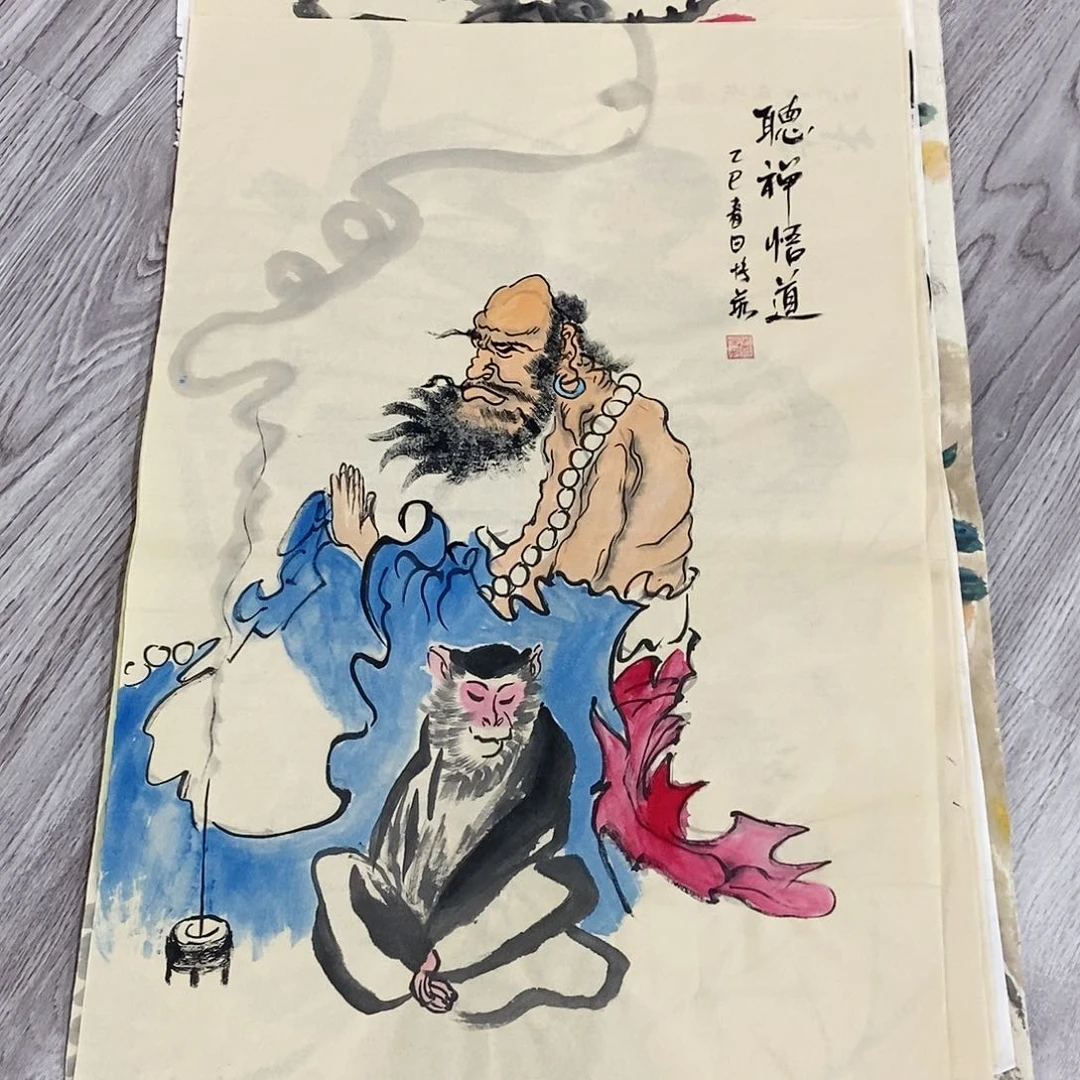 聽禪悟道
乙巳春日